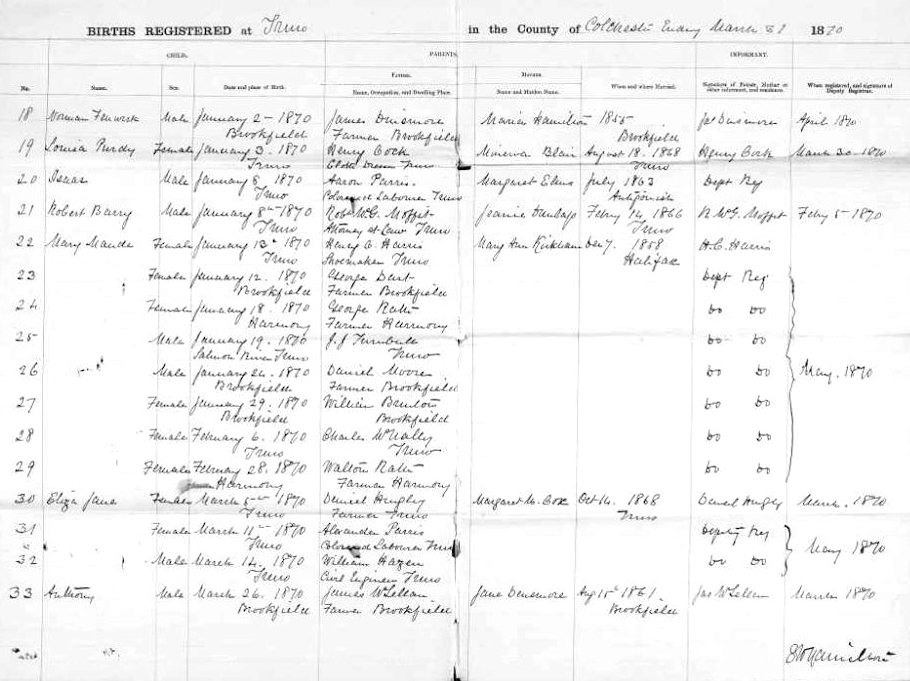 BIRTHS REGISTERED at Truro in the County of Colchester Ending March 31 1870
CHILD. PARENTS. INFORMANT.
FATHER. MOTHER.
No. Name. Sex. Date and place of Birth. Name, Occupation, and Dwelling Place. Name and Maiden Name. When and where Married. Signature of Father, Mother or other informant, and residence. When registered, and signature of Deputy Registrar.
18 Norman Fenwick Male January 2 - 1870 James Dinsmore Maria Hamilton 1855 Jas Densmore April 1870
Brookfield Farmer Brookfield Brookfield
19 Louisa Purdy Female January 3. 1870 Henry Cock Minerva Blair August 18. 1868 Henry Cock March 30. 1870
Truro Truro Truro
20 Isaac Male January 8 1870 Aaron Parris. Margaret Elms July 1863 Dept Reg
Truro Colored Labourer Truro Antigonish
21 Robert Barry Male January 8th 1870 Robt McG. Moffet Jeanie Dunlap Febry 14. 1866 R McG. Moffet Febry 5 1870
Truro Attorney at Law Truro Truro
22 Mary Maude Female January 13 1870 Henry C. Harris Mary Ann Kirkham Dec 7. 1858 H.C. Harris
Truro Shoemaker Truro Halifax
23 Female January 12. 1870 George Dart Dept Reg
Brookfield Farmer Brookfield
24 Female January 18. 1870 George Do Do
Harmony Farmer Harmony
25 Male January 19. 1870 J.J Turnbull Do Do
Salmon River Truro Truro
26 Male January 1870 Daniel Moore Do Do May. 1870
Brookfield Farmer Brookfield
27 Female January 29. 1870 William Brenton Do Do
Brookfield Brookfield
28 Female February 6. 1870 Charles McNally Do Do
Truro Truro
29 Female February 28. 1870 Walton Do Do
Harmony Farmer Harmony
30 Eliza Jane Female March 5th 1870 Daniel Hingley Margaret M. Cox Oct 14. 1868 Daniel Hingley March. 1870
Truro Farmer Truro Truro
31 Female March 11th 1870 Alexander Parris Deputy Reg
Truro Colored Labourer Truro May 1870
32 Male March 14. 1870 William Hazen Do Do
Truro Civil Engineer Truro
33 Anthony Male March 26. 1870 James McLellan Jane Densmore Aug 15th 1861. Jas McLellan March 1870
Brookfield Farmer Brookfield Brookfield